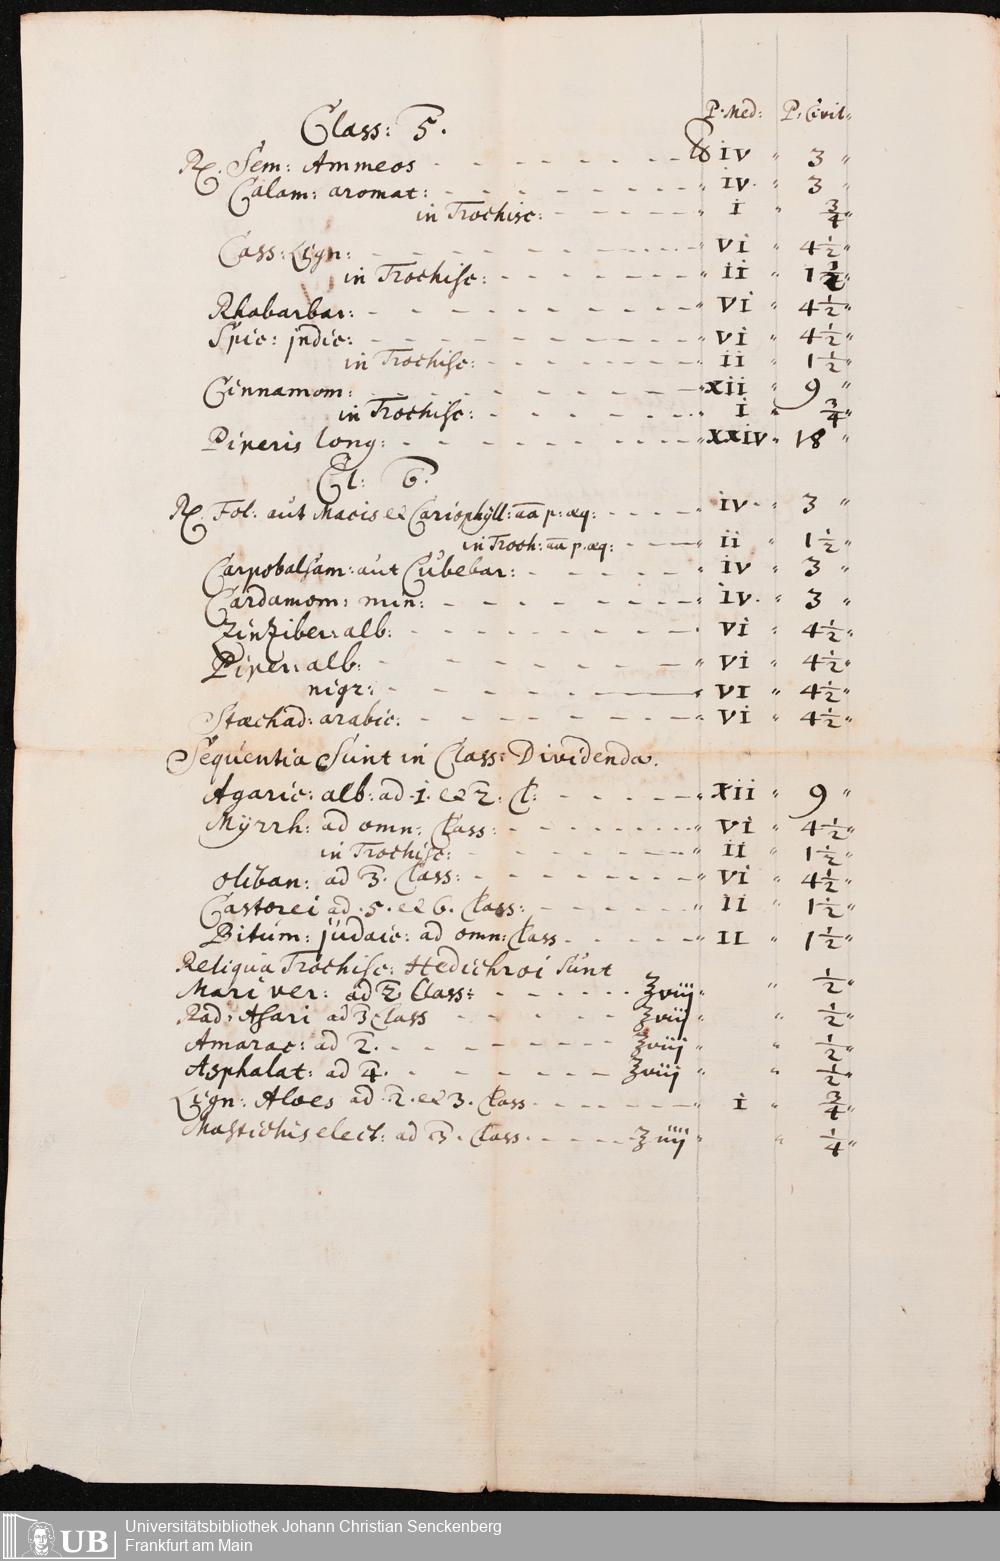 P. Med: P. Civil:
Class: 5.
℞. Sem: Ammeos - - - - - - - ℔ iv " 3 "
Calam: aromat: - - - - - - - " iv. " 3 "
in Trochisc: - - - - - " i " 3/4 "
Cass: Lign: - - - - - - - " vi " 4 1/2 "
in Trochisc: - - - - - - " ii " 1 1/2 "
Rhabarbar: - - - - - - - " vi " 4 1/2 "
Spic: jndic: - - - - - - - " vi " 4 1/2 "
in Trochisc: - - - - - - " ii " 1 1/2 "
Cinnamom: - - - - - - - " xii " 9 "
in Trochisc: - - - - - - " i " 3/4 "
Piperis long: - - - - - - - " xxiv " 18 "
Cl: 6.
℞. Fol: aut Macis et Cariophÿll: aa p: æq: - - - - " iv " 3 "
in Troch: aa p. æq: - - - " ii " 1 1/2 "
Carpobalsam: aut Cubebar: - - - - - " iv " 3 "
Cardamom: min: - - - - - - - " iv. " 3 "
Zinziber: alb: - - - - - - - " vi " 4 1/2 "
Piper: alb: - - - - - - - " vi " 4 1/2 "
nigr: - - - - - - - " vi " 4 1/2 "
Stæchad: arabic: - - - - - - - " vi " 4 1/2 "
Sequentia Sunt in Class: Dividenda.
Agaric: alb: ad .1. et 2. Cl: - - - - - " xii " 9 "
Mÿrrh: ad omn: Class: - - - - - - " vi " 4 1/2 "
in Trochisc: - - - - - - " ii " 1 1/2 "
Oliban: ad 3. Class: - - - - - - - " vi " 4 1/2 "
Castorei ad .5. et 6. Class: - - - - - " ii " 1 1/2 "
Bitum: judaic: ad omn: Class - - - - - " ii " 1 1/2 "
Reliqua Trochisc: Hedichroi Sunt
Mari ver: ad 2 Class: - - - - - - ʒviij " " 1/2 "
Rad: Asari ad 3 Class - - - - - ʒviij " " 1/2 "
Amarac: ad 2. - - - - - - - ʒviij " " 1/2 "
Asphalat: ad 4. - - - - - - ʒviij " " 1/2 "
Lign: Aloes ad .2. et 3. Class - - - - - - " i " 3/4 "
Mastichis elect: ad 3. Class - - - - - ʒ iiij " " 1/4 "
UB
Universitätsbibliothek Johann Christian Senckenberg
Frankfurt am Main